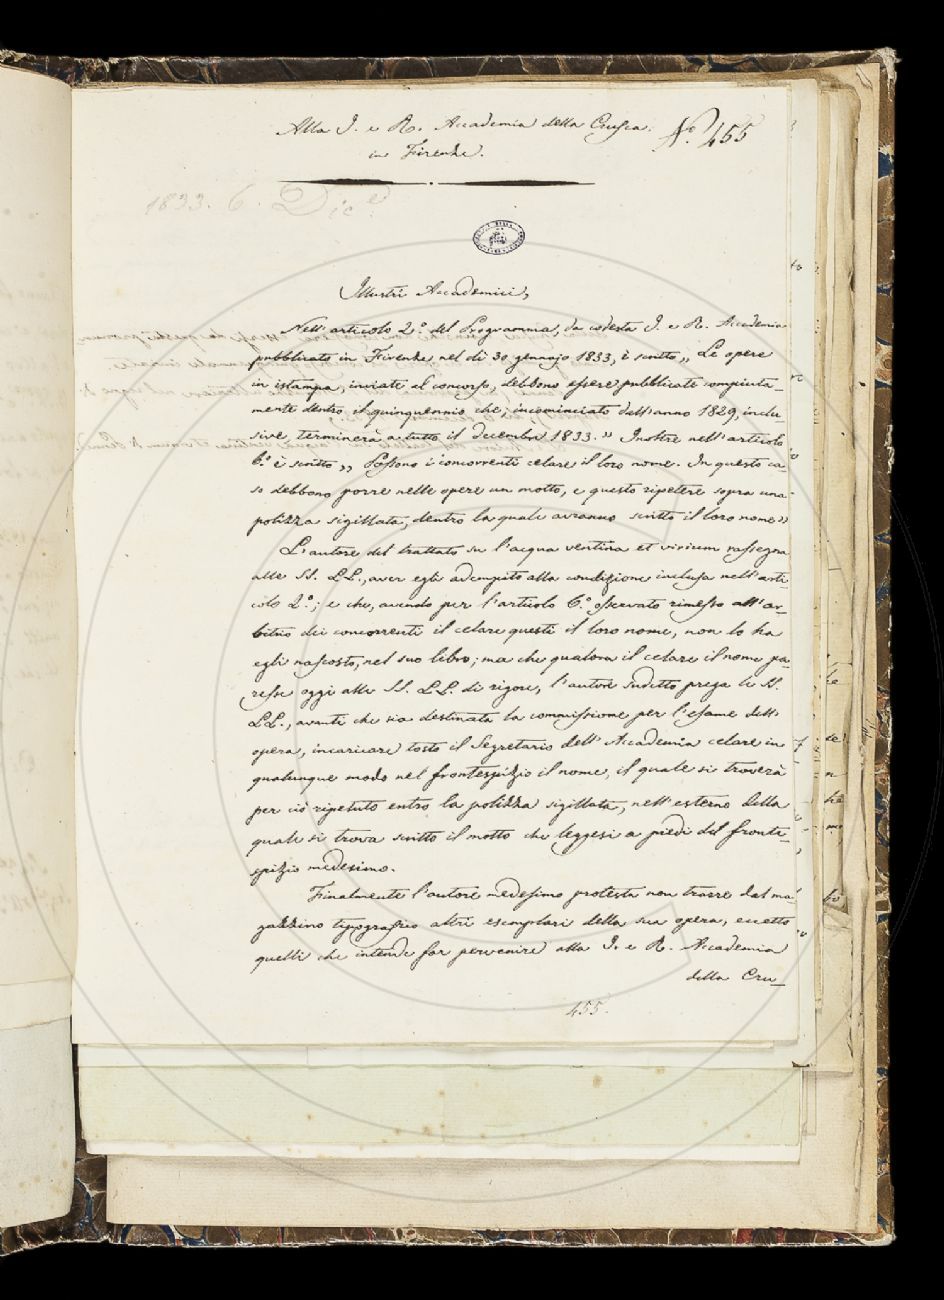 Alla I. e R. Accademia della Crusca.
N.º 455
in Firenze.
1833. 6. Dic.e
Illustri Accademici,
Nell'articolo 2.º del Programma, da codesta I. e R. Accademia
pubblicato in Firenze nel dì 30 gennajo 1833, è scritto „ Le opere
in istampa, inviate al concorso, debbono essere pubblicate compiuta-
mente dentro il quinquennio che, incominciato dall'anno 1829, inclu-
sive, terminerà a tutto il decembre 1833. " Inoltre nell'articolo
6.º è scritto „ Possono i concorrenti celare il loro nome. In questo ca-
so debbono porre nelle opere un motto, e questo ripetere sopra una
polizza sigillata, dentro la quale avranno scritto il loro nome "
L'autore del trattato su l'acqua ventina et virium rassegna
alle SS. LL., aver egli adempito alla condizione inclusa nell'arti-
colo 2.º; e che, avendo per l'articolo 6.º osservato rimesso all'ar-
bitrio dei concorrenti il celare questi il loro nome, non lo ha
egli nascosto, nel suo libro; ma che qualora il celare il nome pa-
resse oggi alle SS. LL. di rigore, l'autore sudetto prega le SS.
LL., avanti che sia destinata la commissione per l'esame dell'
opera, incaricare tosto il Segretario dell'Accademia celare in
qualunque modo nel frontespizio il nome, il quale si troverà
per ciò ripetuto entro la polizza sigillata, nell'esterno della
quale si trova scritto il motto che leggesi a piedi del fronte-
spizio medesimo.
Finalmente l'autore medesimo protesta non trarre dal ma-
gazzino tipografico altri esemplari della sua opera, eccetto
quelli che intende far pervenire alla I. e R. Accademia
della Cru-
455.